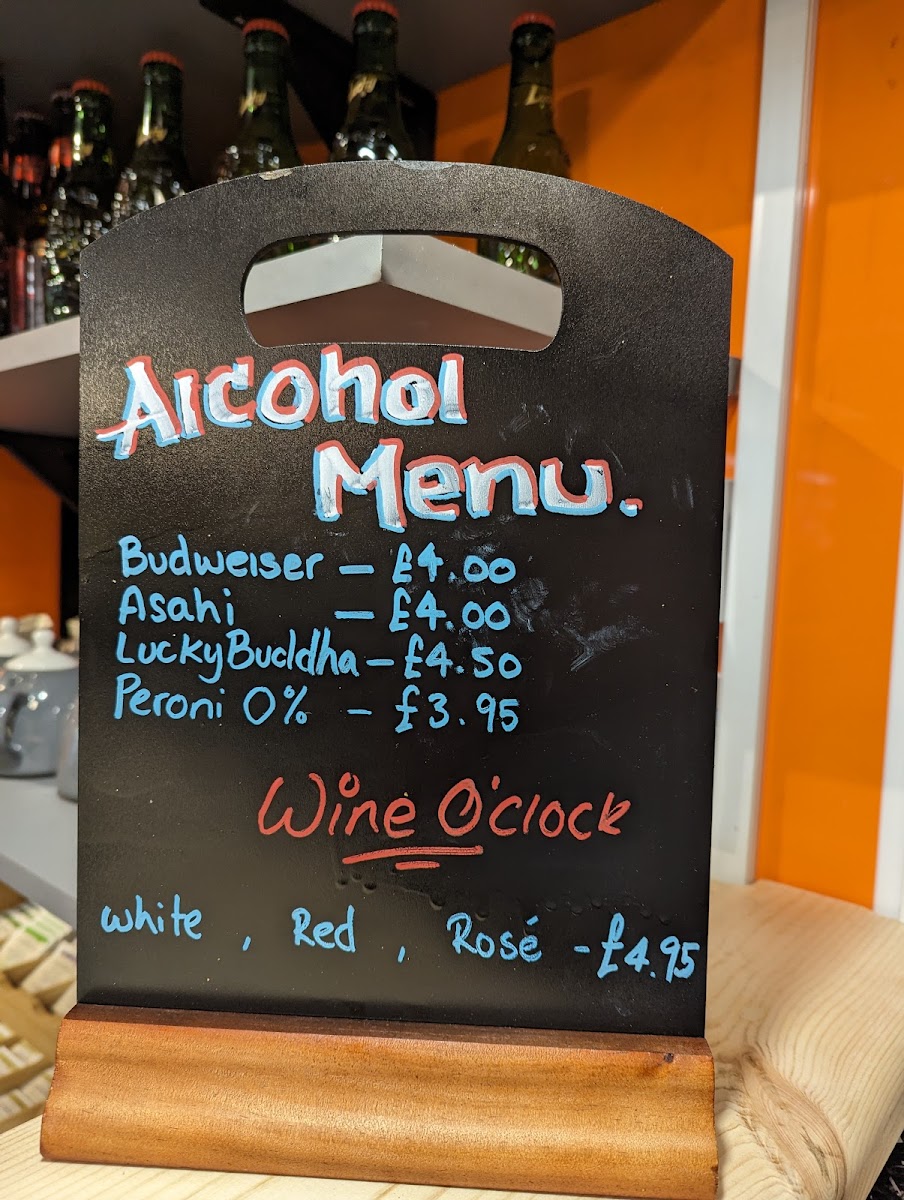 Alcohol
Menu.
Budweiser - £4.00
Asahi - £4.00
Lucky Buddha - £4.50
Peroni 0% - £3.95
Wine O'clock
White , Red , Rosé - £4.95